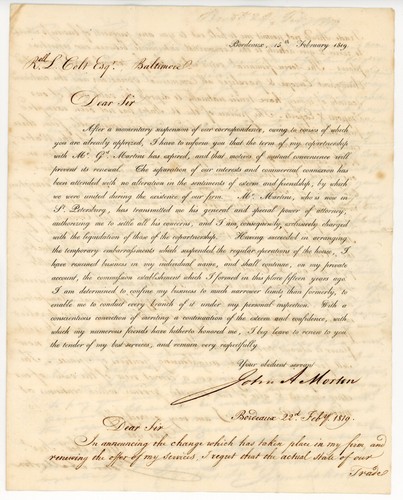 Bordeaux, 15th February 1819.
Rsll L. Colt Esqr. Baltimore
Dear Sir
After a momentary suspension of our correspondence, owing to causes of which
you are already apprized, I have to inform you that the term of my copartnership
with Mr. Gs. Martini has expired, and that motives of mutual convenience will
prevent its renewal. The separation of our interests and commercial connexion has
been attended with no alteration in the sentiments of esteem and friendship, by which
we were united during the existence of our firm. Mr. Martini, who is now in
St. Petersburg, has transmitted me his general and special power of attorney,
authorizing me to settle all his concerns, and I am, consequently, exclusively charged
with the liquidation of those of the copartnership. Having succeeded in arranging
the temporary embarrassments which suspended the regular operations of the house, I
have resumed business in my individual name, and shall continue, on my private
account, the commission establishment which I formed in this place fifteen years ago.
I am determined to confine my business to much narrower limits than formerly, to
enable me to conduct every branch of it under my personal inspection. With a
conscientious conviction of meriting a continuation of the esteem and confidence, with
which my numerous friends have hitherto honored me, I beg leave to renew to you
the tender of my best services, and remain, very respectfully
Your obedient servant
John A Morton
Bordeaux 22d. Feby. 1819.
Dear Sir
In announcing the change which has taken place in my firm and
renewing the offer of my services, I regret that the actual state of our
Trade